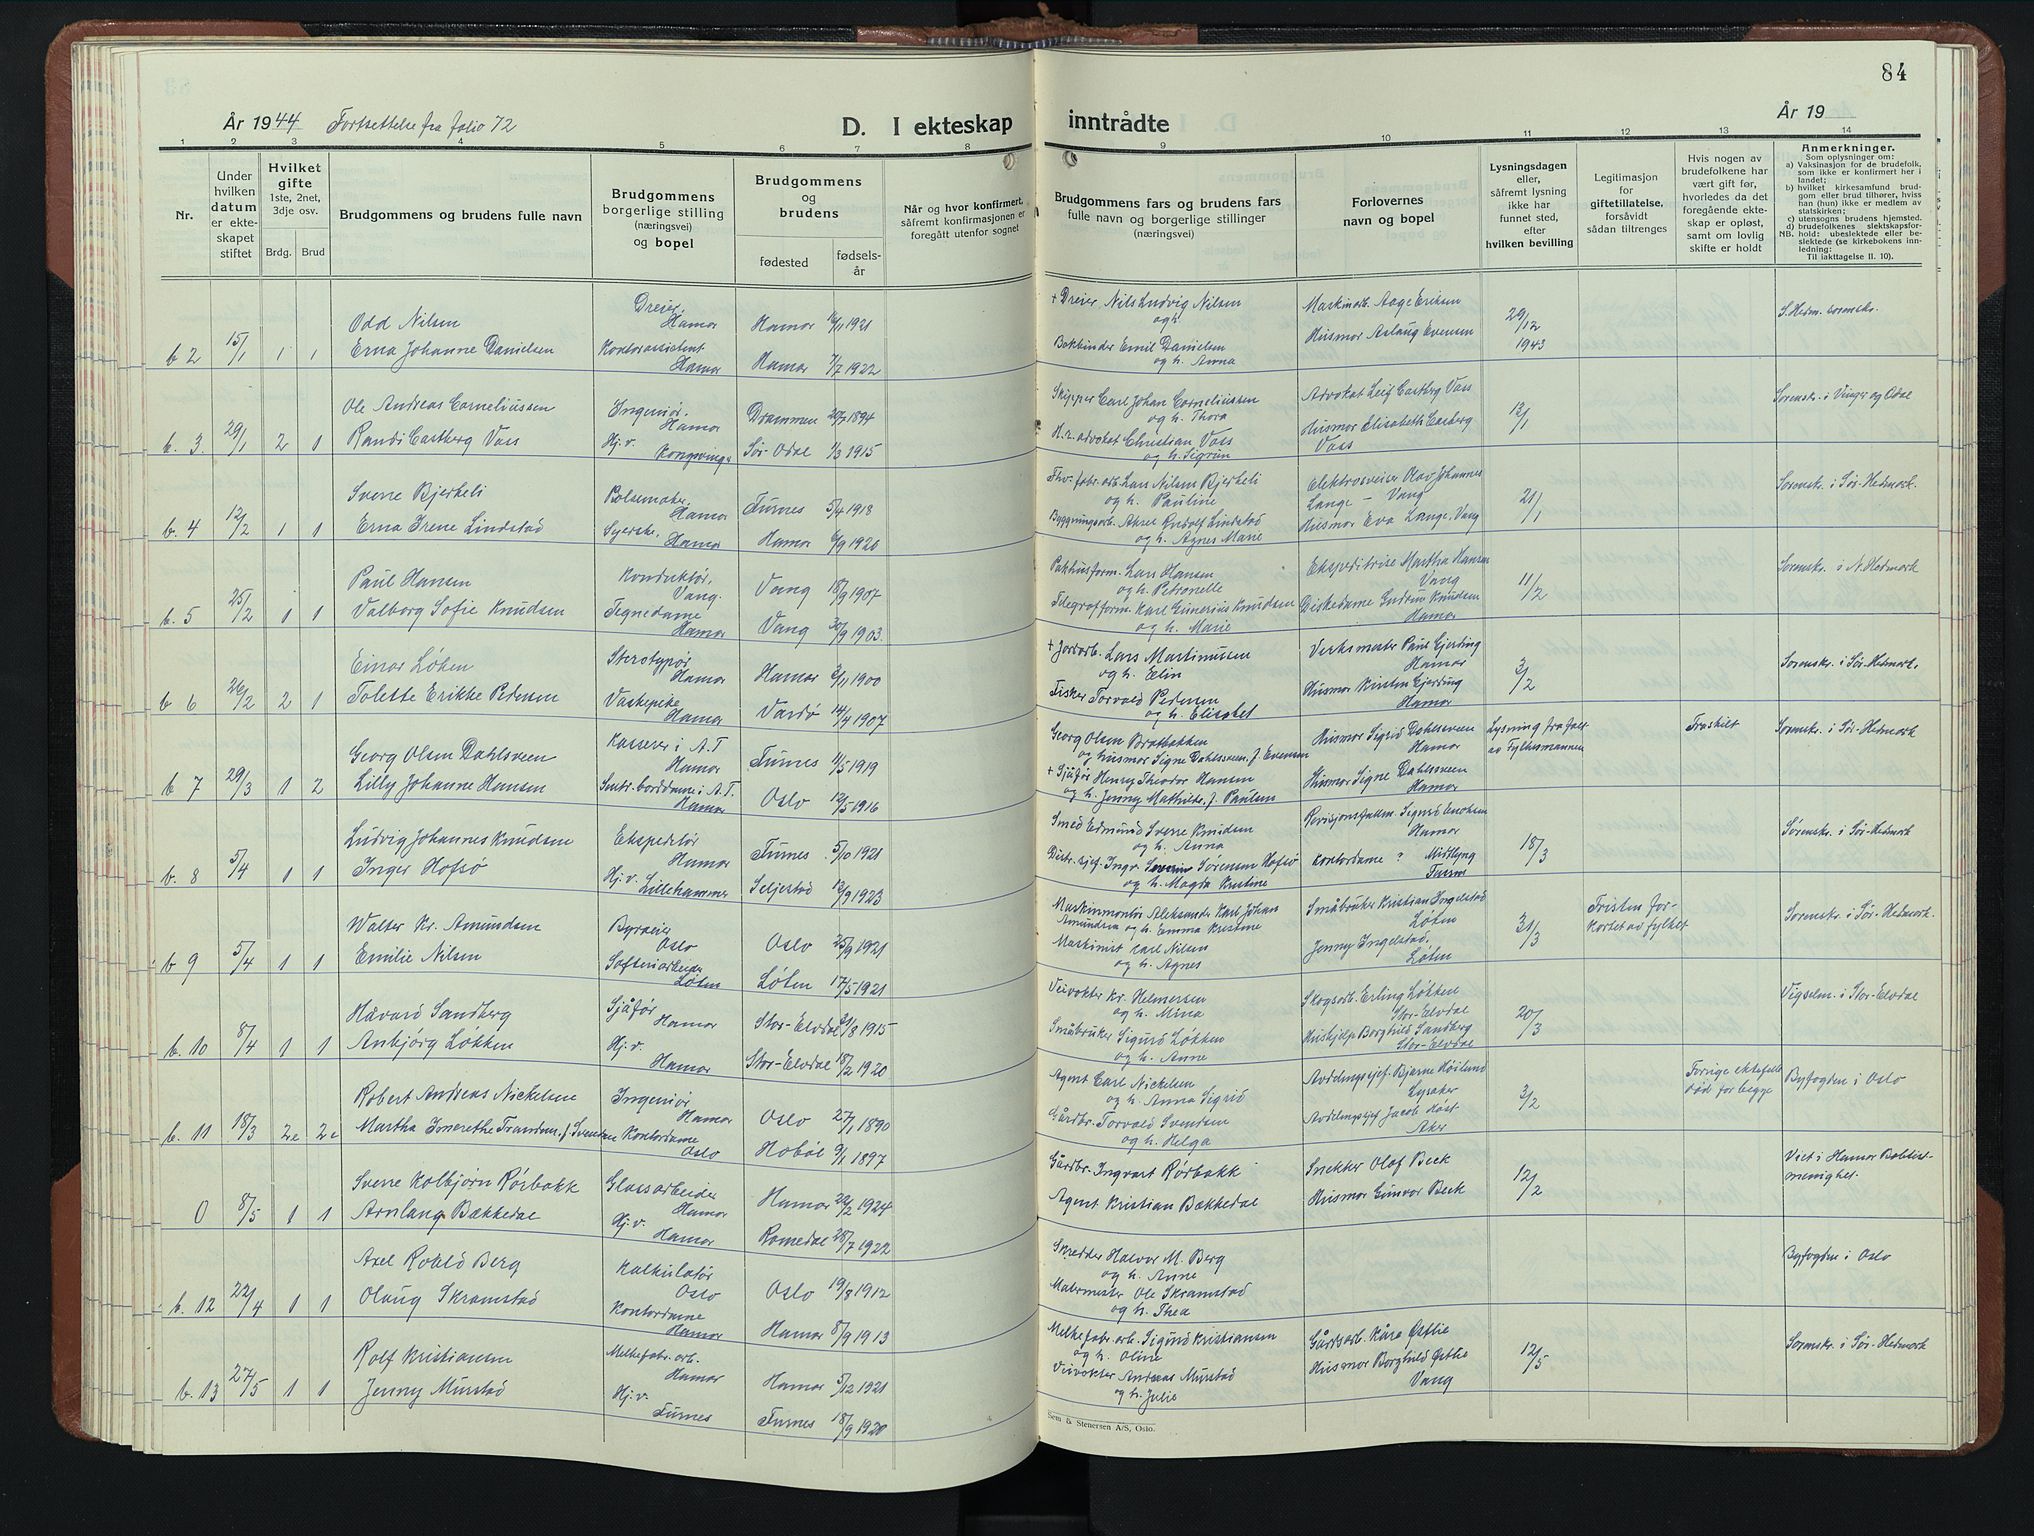 84
År 1944 Fortsettelse fra folio 72
D. I ekteskap inntrådte
År 19
1 2 3 4 5 6 7 8 9 10 11 12 13 14
Nr.
Under hvilken datum er ekteskapet stiftet
Hvilket gifte 1ste, 2net, 3dje osv.
Brdg. Brud
Brudgommens og brudens fulle navn
Brudgommens borgerlige stilling (næringsvei) og bopel
Brudgommens og brudens
fødested fødselsår
Når og hvor konfirmert, såfremt konfirmasjonen er foregått utenfor sognet
Brudgommens fars og brudens fars fulle navn og borgerlige stillinger (næringsvei)
Forlovernes navn og bopel
Lysningsdagen eller, såfremt lysning ikke har funnet sted, efter hvilken bevilling
Legitimasjon for giftetillatelse, forsåvidt sådan tiltrenges
Hvis nogen av brudefolkene har vært gift før, hvorledes da det foregående ekteskap er opløst, samt om lovlig skifte er holdt
Anmerkninger.
Som oplysninger om:
a) Vaksinasjon for de brudefolk, som ikke er konfirmert her i landet;
b) hvilket kirkesamfund brudgom eller brud tilhører, hvis han (hun) ikke er medlem av statskirken;
c) utensogns brudens hjemsted.
d) brudefolkenes slektskapsforhold: ubeslektede eller beslektede (se kirkebokens innledning:
NB. Til iakttagelse II. 10).
b 2 15/1 1 1 Odd Nilsen Dreier, Hamar Hamar 1921 + Dreier Nils Ludvig Nilsen og h. Maskinarb. Aage Eriksen 29/12 1943 S. Hedm. sorenskr.
Erna Johanne Danielsen Kontorassistent Hamar Hamar 7/7 1922 Bokbinder Emil Danielsen og h. Anna Husmor Aslaug Evensen
b. 3. 29/1 2 1 Ole Andreas Corneliussen Ingeniør, Hamar Drammen 1894 Skipper Carl Johan Corneliussen og h. Thora Advokat Leif Castberg Vass 13/1 Sorenskr. i Vinger og Odal
Randi Castberg Vass Hj. v. Kongsvinger Sør-Odal 1/3 1915 H.r. advokat Christian Vass og h. Sigrun Husmor Elisabeth Casberg Vass
b. 4 12/2 1 1 Sverre Bjerkeli Pølsemaker, Hamar Furnes 5/4 1918 Thv. fabr. arb. Lars Nilsen Bjerkeli og h. Pauline Elektrosveiser Olav Johannes Lange - Vang 21/1 Sorenskr. i Sør-Hedmark.
Erna Irene Lindstad Syerske, Hamar Hamar 6/9 1920 Byggningsarb. Aksel Rudolf Lindstad og h. Agnes Marie Husmor Eva Lange, Vang
b. 5 25/2 1 1 Paul Hansen Konduktør, Vang. Vang 18/9 1907 Pakhusform. Lars Hansen og h. Petronelle Ekspeditrise Martha Hansen Vang 11/2 Sorenskr. i N. Hedmark
Valborg Sofie Knudsen Tegnedame Hamar Vang 30/9 1903. Telegrafform. Karl Gunerius Knudsen og h. Marie Diskedame Gudrun Knudsen Hamar
b 6 26/2 2 1 Einar Løten Sterotypør Hamar Hamar 2/11 1900 + Jordarb. Lars Martinussen og h. Elin Verksmester Paul Gjerding Hamar 3/2 Sorenskr. i Sør-Hedmark.
Tolette Erikke Pedersen Vaskepike Hamar Vardø 14/4 1907 Fisker Torvald Pedersen og h. Elisabet Husmor Kirsten Gjerding Hamar
b 7 29/3 1 2 Georg Olsen Dahlsveen Kasserer i A.T Hamar Furnes 11/5 1919 Georg Olsen Bratbakken og husmor Signe Dahlsveen, f. Evensen Husmor Sigrid Dahlsveen Hamar Lysning frafalt av Fylkesmannen Fraskilt Sorenskr. i Sør-Hedmark
Lilly Johanne Hansen Sentr. borddame i A.T. Hamar Oslo 12/5 1916 + Sjåfør Henry Theodor Hansen og h. Jenny Mathilde, f. Paulsen Husmor Signe Dahlsveen Hamar
b. 8 5/4 1 1 Ludvig Johannes Knudsen Ekspeditør Hamar Furnes 5/10 1921 Smed Edmund Sverre Knudsen og h. Anna Revisjonsfullm. Sigurd Enoksen Hamar 18/3 Sørenskr. i Sør-Hedmark
Inger Hofsø Hj. v. Lillehammer Seljestad 13/9 1923 Distr. sjef. Ingv. Severin Sørensen Hofsø og h. Magda Kristine Kontordame ? Midtlyng Furnes
b 9 5/4 1 1 Walter Kr. Amundsen Byråeier Oslo Oslo 25/9 1921 Maskinmontør Aleksander Karl Johan Amundsen og h. Emma Kristine Småbruker Kristian Ingelstad Løten 31/3 Fristen forkortet av fylket Sorenskr. i Sør-Hedmark.
Emilie Nilsen Softeriarbeider Løten Løten 17/5 1921 Maskinist Carl Nilsen og h. Agnes Jenny Ingelstad, Løten
b. 10 8/4 1 1 Håvard Sandberg Sjåfør Hamar Stor-Elvdal 21/8 1915 Veivokter Kr. Helmersen og h. Mina Skogsarb. Erling Løkken Stor-Elvdal 20/3 Vigselm. i Stor-Elvdal
Anbjørg Løkken Hj. v. Hamar Stor-Elvdal 18/2 1920 Småbruker Sigurd Løkken og h. Anne Hushjelp Borghild Sandberg Stor-Elvdal
b. 11 18/3 2e 2e Robert Andreas Nickelsen Ingeniør Hamar Oslo 27/1 1890 Agent Carl Nickelsen og h. Anna Sigrid Avdelingssjef. Bjarne Høilund Lysaker 3/2 Forrige ektefelle død for begge Byfogden i Oslo
Martha Ingerethe Frandsen, f. Svendsen Kontordame Oslo Hobøl 9/1 1897 Gårdbr. Torvald Svendsen og h. Helga Avdelingssjef Jacob Røst Aker
0 8/5 1 1 Sverre Kolbjørn Rørbakk Glassarbeider Hamar Hamar 22/2 1924 Gårdbr. Ingvart Rørbakk Snekker Olaf Beck 12/2 Viet i Hamar Baptistmenighet.
Arnlaug Bækkedal Hj. v. Hamar Romedal 28/7 1922 Agent Kristian Bækkedal Husmor Gunvor Beck
b. 12 22/4 1 1 Axel Roald Berg Kalkulatør Oslo Oslo 19/8 1912 Skredder Halvor M. Berg og h. Anne Byfogden i Oslo
Olaug Skramstad Kontordame Hamar Hamar 8/9 1913 Malermester Ole Skramstad og h. Thea
b. 13 27/5 1 1 Rolf Kristiansen Melkefabr. arb. Hamar Hamar 5/12 1921 Melkefabr. arb. Sigurd Kristiansen og h. Oline Gårdsarb. Kåre Østlie 12/5 Sorenskr. i Sør-Hedmark
Jenny Murstad Hj. v. Furnes Furnes 18/9 1920 Veivokter Andreas Murstad og h. Julie Husmor Borghild Østlie Vang
Sem & Stenersen A/S, Oslo.